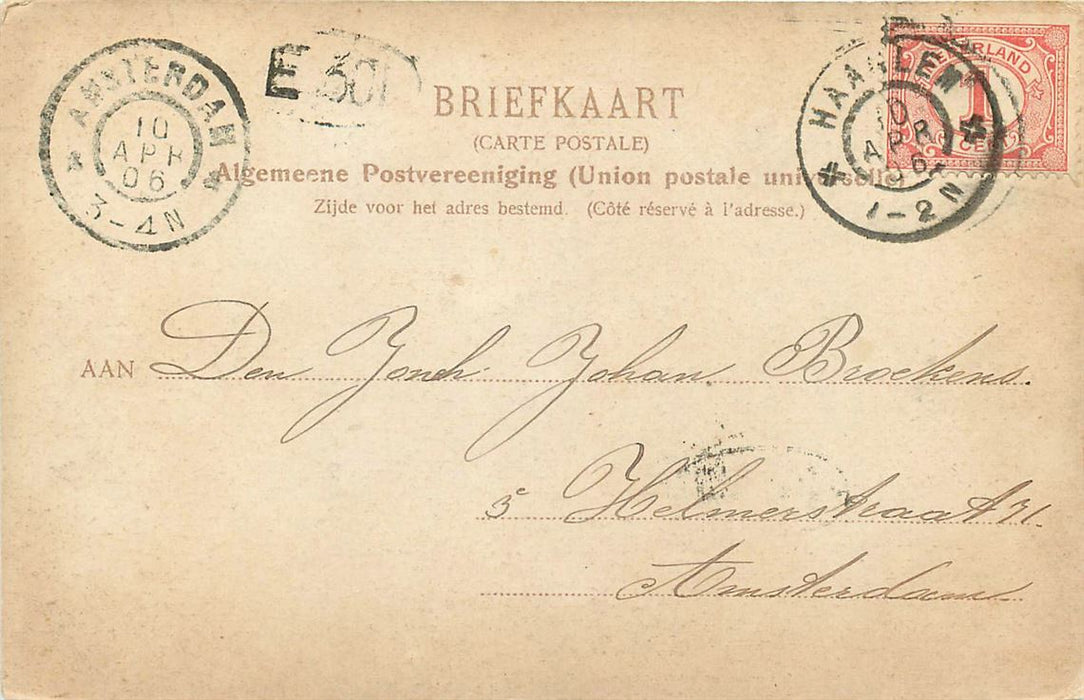 AMSTERDAM
10
APR
06
3-4N
E 301
BRIEFKAART
(CARTE POSTALE)
Algemeene Postvereeniging (Union postale universelle)
Zijde voor het adres bestemd. (Côté réservé à l'adresse.)
HAARLEM
10
APR
06
1-2N
NEDERLAND
1
CENT
AAN Den Jonch: Johan Broekens.
3e Helmerstraat 71.
Amsterdam